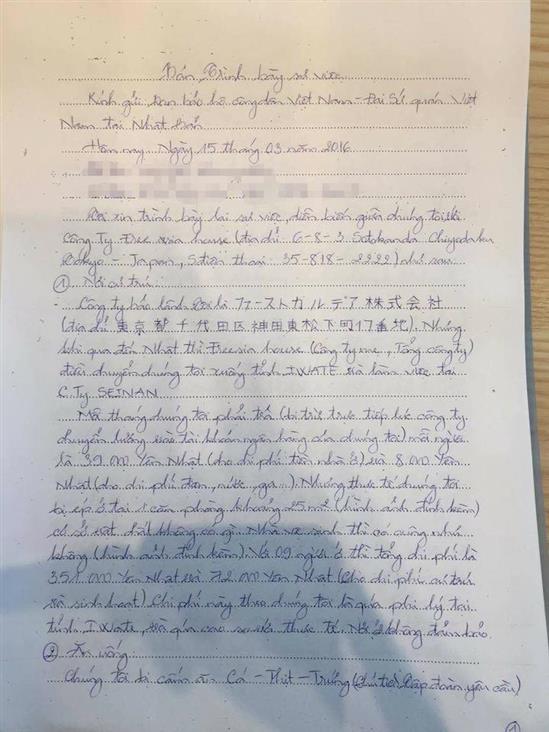 Bản Trình bày sự việc
Kính gửi Ban bảo hộ công dân Việt Nam - Đại Sứ quán Việt
Nam tại Nhật Bản
Hôm nay, Ngày 15 tháng 03 năm 2016
Tôi xin trình bày lại sự việc, diễn biến giữa chúng tôi với
Công Ty Freesia house (địa chỉ 6-8-3 Sotokanda Chiyodaku
Tokyo - Japan, Số điện thoại: 35-818-2222) như sau
① Nơi cư trú
Công ty bảo lãnh tôi là ファーストカルデア株式会社
(địa chỉ 東京都千代田区神田東松下町17番地). Nhưng
khi qua đến Nhật thì Freesia house (Công ty mẹ, Tổng công ty)
điều chuyển chúng tôi xuống tỉnh IWATE và làm việc tại
C.Ty SEINAN
Mỗi tháng chúng tôi phải trả (bị trừ trực tiếp lúc công ty
chuyển lương vào tài khoản ngân hàng của chúng tôi) mỗi người
là 39.000 Yên Nhật (cho chi phí tiền nhà ở) và 8.000 Yên
Nhật (cho chi phí điện, nước, ga...). Nhưng thực tế chúng tôi
bị ép ở tại 1 căn phòng khoảng 25m² (hình ảnh đính kèm)
cơ sở vật chất không có gì. Nhà vệ sinh thì có cũng như
không (hình ảnh đính kèm). Với 09 người ở thì tổng chi phí là
351.000 Yên Nhật và 72.000 Yên Nhật (Cho chi phí cư trú
và sinh hoạt) Chi phí này theo chúng tôi là quá phi lý tại
tỉnh IWate, và quá cao so với thực tế. Nơi ở không đảm bảo
② Ăn uống
Chúng tôi bị cấm ăn Cá - Thịt - Trứng (Chủ tịch Tập đoàn yêu cầu)
①